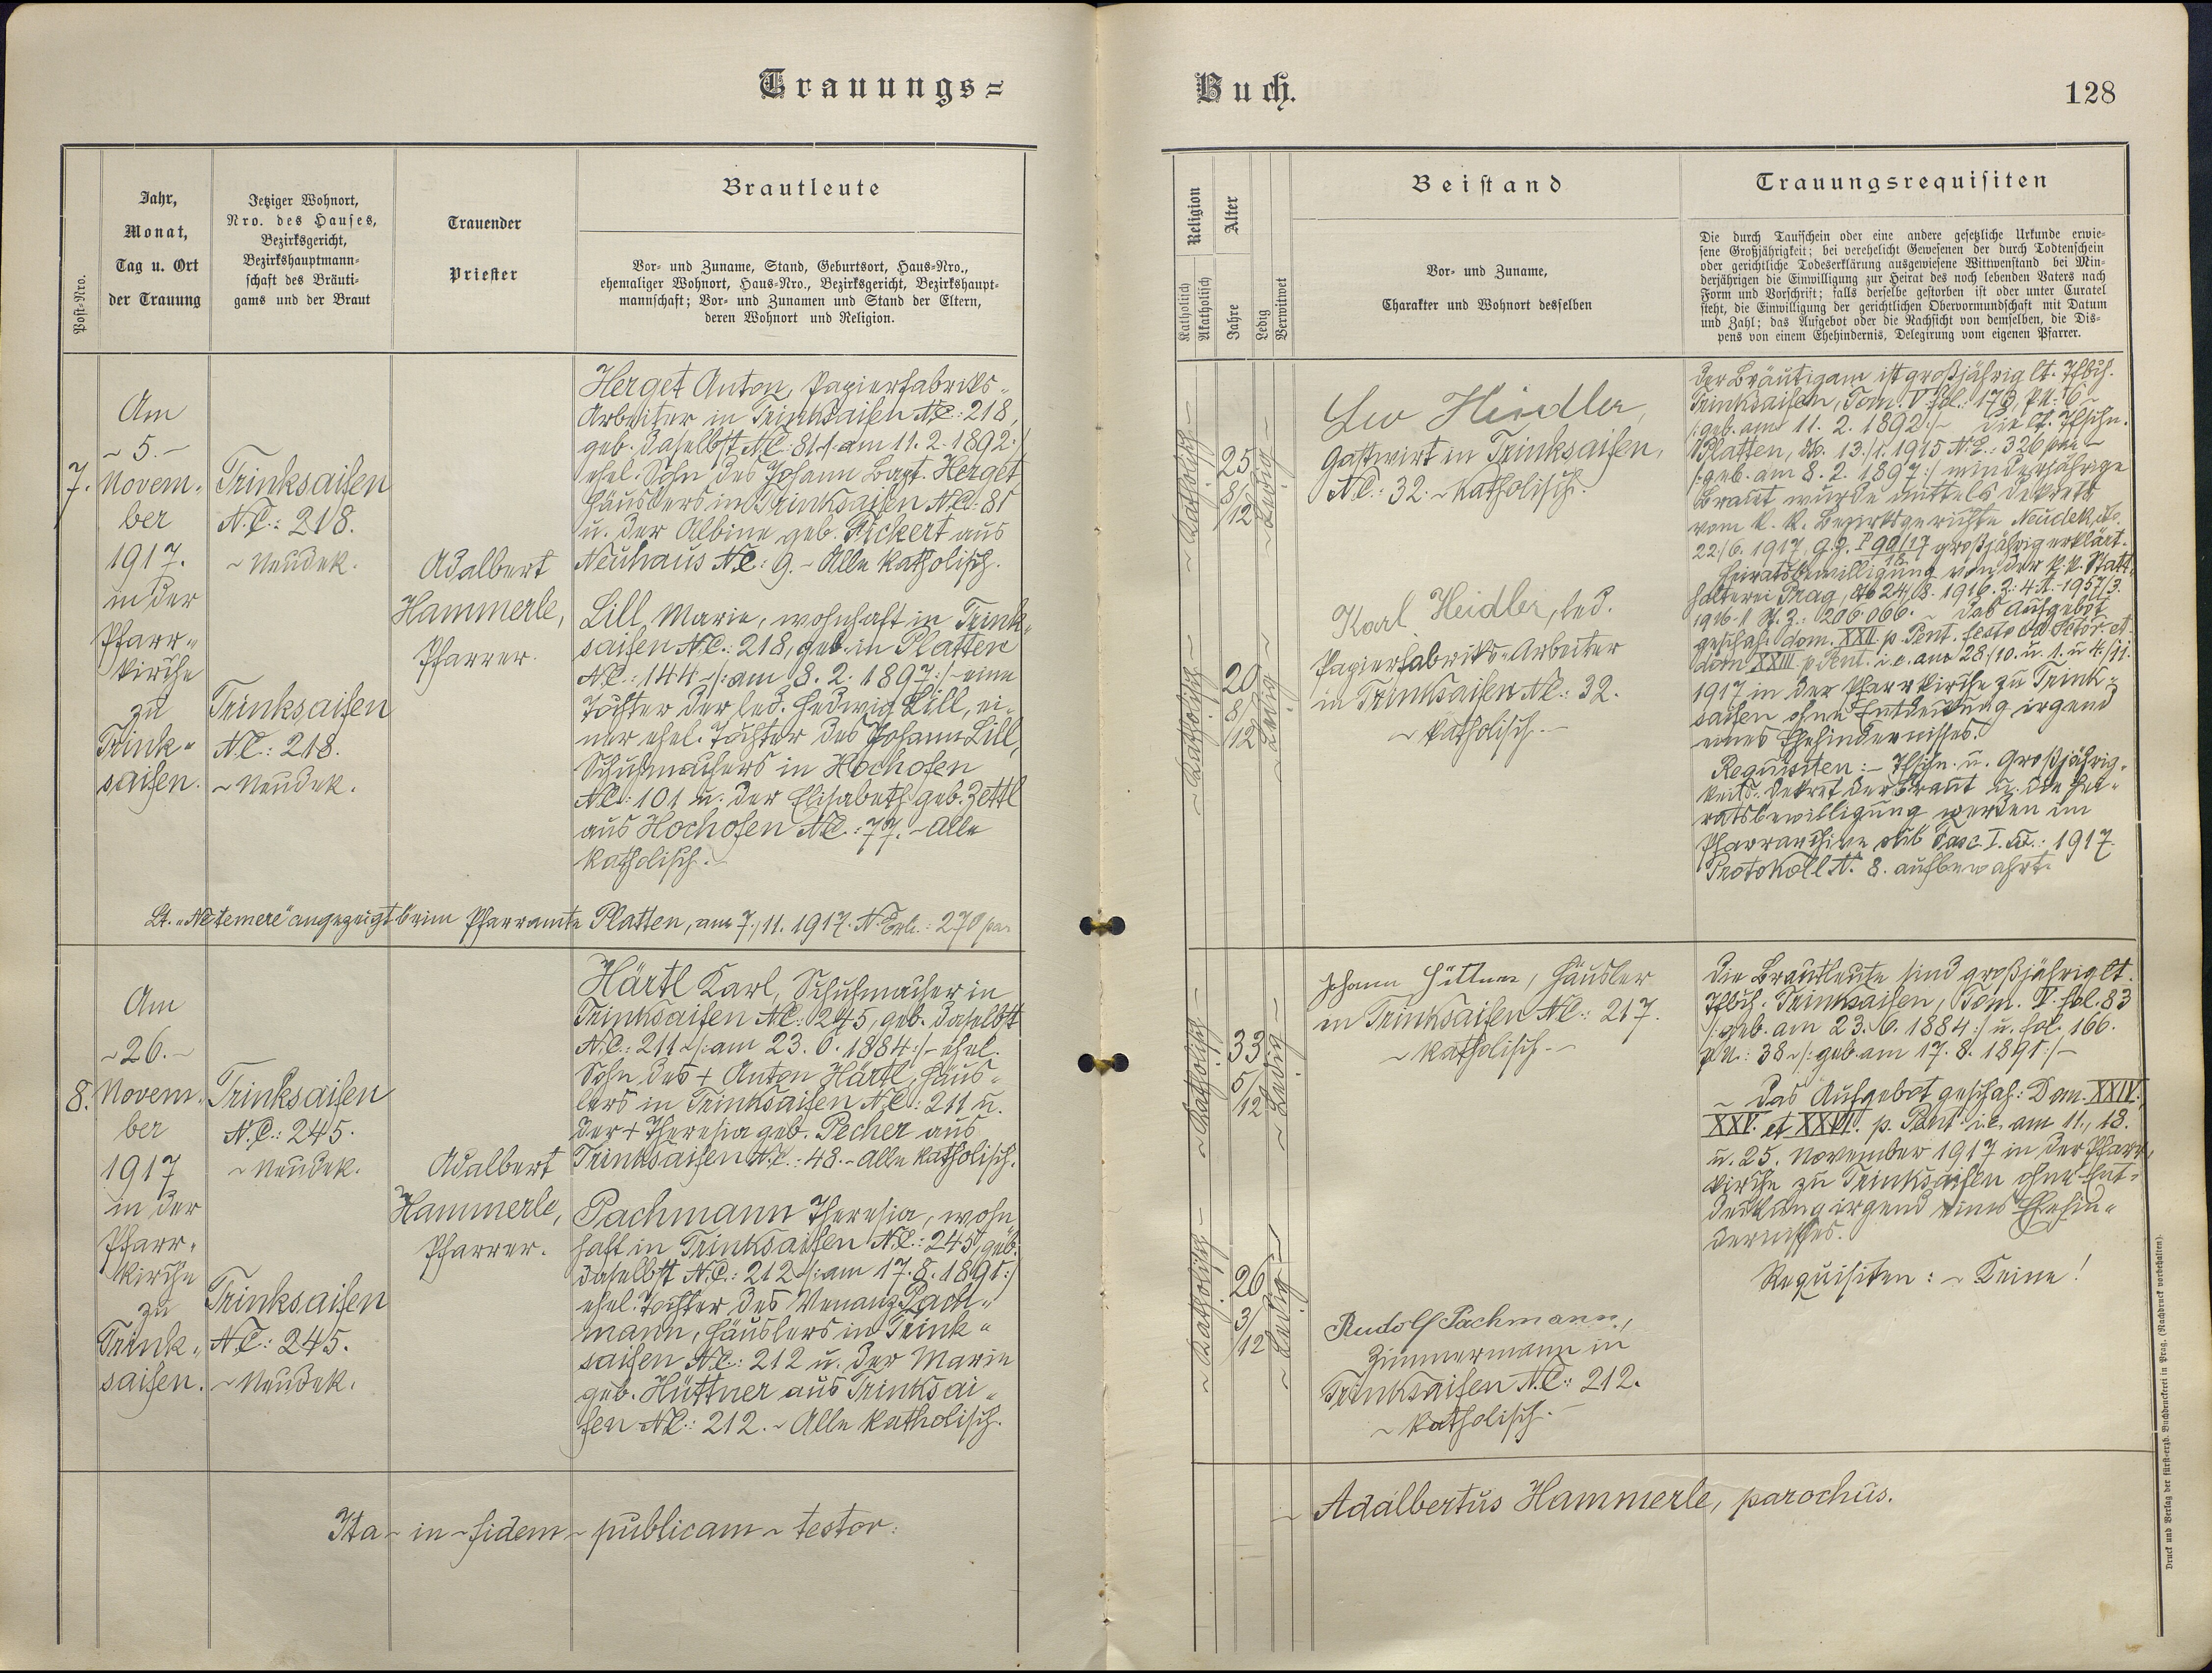 Trauungs=
Buch.
128
Post-Nro.
Jahr,
Monat,
Tag u. Ort
der Trauung
Jetziger Wohnort,
Nro. des Hauses,
Bezirksgericht,
Bezirkshauptmann-
schaft des Bräuti-
gams und der Braut
Trauender
Priester
Brautleute
Vor- und Zuname, Stand, Geburtsort, Haus-Nro.,
ehemaliger Wohnort, Haus-Nro., Bezirksgericht, Bezirkshaupt-
mannschaft; Vor- und Zunamen und Stand der Eltern,
deren Wohnort und Religion.
Religion
Katholisch
Akatholisch
Alter
Jahre
Ledig
Verwitwet
Beistand
Vor- und Zuname,
Charakter und Wohnort desselben
Trauungsrequisiten
Die durch Taufschein oder eine andere gesetzliche Urkunde erwie-
sene Großjährigkeit; bei verehelicht Gewesenen der durch Todtenschein
oder gerichtliche Todeserklärung ausgewiesene Wittwenstand bei Min-
derjährigen die Einwilligung zur Heirat des noch lebenden Vaters nach
Form und Vorschrift; falls derselbe gestorben ist oder unter Curatel
steht, die Einwilligung der gerichtlichen Obervormundschaft mit Datum
und Zahl; das Aufgebot oder die Nachsicht von demselben, die Dis-
pens von einem Ehehindernis, Delegirung vom eigenen Pfarrer.
7.
Am
~ 5. ~
Novem-
ber
1917.
in der
Pfarr-
kirche
zu
Trink-
saifen.
Trinksaifen
N.C.: 218.
~ Neudek.
Trinksaifen
N.C.: 218.
~ Neudek.
Adalbert
Hammerle,
Pfarrer.
Herget Anton, Papierfabriks-
Arbeiter in Trinksaifen N.C.: 218,
geb. daselbst N.C.: 81 /: am 11. 2. 1892 :/
ehel. Sohn des Johann Bapt. Herget
Häuslers in Trinksaifen N.C.: 81
u. der Albine geb. Pickert aus
Neuhaus N.C.: 9. ~ Alle katholisch.
Lill Marie, wohnhaft in Trink-
saifen N.C.: 218, geb. in Platten
N.C.: 144 ~ /: am 8. 2. 1897 :/ ~ eine
Tochter der led. Hedwig Lill, ei-
ner ehel. Tochter des Johann Lill,
Schuhmachers in Hochofen
N.C.: 101 u. der Elisabeth geb. Zettl
aus Hochofen N.C.: 77. ~ Alle
katholisch.
~ Katholisch ~
25
8/12
~ Ledig ~
~ Katholisch ~
20
8/12
~ Ledig ~
Leo Heidler,
Gastwirt in Trinksaifen,
N.C.: 32. ~ Katholisch.
Karl Heidler, led.
Papierfabriks-Arbeiter
in Trinksaifen N.C.: 32.
~ katholisch. ~
Der Bräutigam ist großjährig lt. Tfbch.
Trinksaifen, Tom. V. fol.: 173, 6 ~
/: geb. am 11. 2. 1892 :/ ~ Die lt. Tfschn.
Platten, 13./1. 1915 N.E.: 326
/: geb. am 8. 2. 1897 :/ minderjährige
Braut wurde mittels Dekrets
vom k. k. Bezirksgerichte Neudek,
22./6. 1917, g.z. P 90/17 großjährig erklärt.
Heiratsbewilligung von der k. k. Statt-
halterei Prag, 24./8. 1916. Z.: 4. A. - 1957/3.
1916 ~ 206.066. ~ Das Aufgebot
geschah: dom. XXII. p. Pent. festo et
dom XXIII. p. Pent. i. e. am 28./10. u. 1. u. 4./11.
1917 in der Pfarrkirche zu Trink-
saifen ohne Entdeckung irgend
eines Ehehindernisses.
Requisiten: ~ Tfschn. u. Großjährig-
keits-Dekret der Braut u. die Hei-
ratsbewilligung werden im
Pfarrarchive sub Fasc. I. 1917.
Protokoll N. 8. aufbewahrt.
Lt. „Ne temere" angezeigt beim Pfarramte Platten, am 7./11. 1917. N. Exh.: 270
8.
Am
~ 26. ~
Novem-
ber
1917
in der
Pfarr-
kirche
zu
Trink-
saifen.
Trinksaifen
N.C.: 245.
~ Neudek.
Trinksaifen
N.C.: 245.
~ Neudek.
Adalbert
Hammerle,
Pfarrer.
Härtl Karl, Schuhmacher in
Trinksaifen N.C.: 245, geb. daselbst
N.C.: 211 ~ /: am 23. 6. 1884 :/ ~ ehel.
Sohn des + Anton Härtl, Häus-
lers in Trinksaifen N.C.: 211 u.
der + Theresia geb. Pecher aus
Trinksaifen N.C.: 48. ~ Alle katholisch.
Pachmann Theresia, wohn-
haft in Trinksaifen N.C.: 245, geb.
daselbst N.C.: 212 ~ /: am 17. 8. 1891 :/
ehel. Tochter des Venanz Pach-
mann, Häuslers in Trink-
saifen N.C.: 212 u. der Marie
geb. Hüttner aus Trinksai-
fen N.C.: 212. ~ Alle katholisch.
~ Katholisch ~
33
5/12
~ Ledig ~
~ Katholisch ~
26
3/12
~ Ledig ~
Johann Hüttner, Häusler
in Trinksaifen N.C.: 217.
~ katholisch. ~
Rudolf Pachmann,
Zimmermann in
Trinksaifen N.C.: 212.
~ katholisch. ~
Die Brautleute sind großjährig lt.
Tfbch. Trinksaifen, Tom. V. fol. 83
/: geb. am 23. 6. 1884 :/ u. fol. 166.
p. N.: 38 ~ /: geb. am 17. 8. 1891 :/ ~
~ Das Aufgebot geschah: Dom. XXIV.,
XXV. et XXVI. p. Pent. i. e. am 11., 18.
u. 25. November 1917 in der Pfarr-
kirche zu Trinksaifen ohne Ent-
deckung irgend eines Ehehin-
dernisses.
Requisiten: ~ Keine!
Ita ~ in ~ fidem ~ publicam ~ testor:
~ Adalbertus Hammerle, parochus.
Druck und Verlag der fürst-erzb. Buchdruckerei in Prag. (Nachdruck vorbehalten).